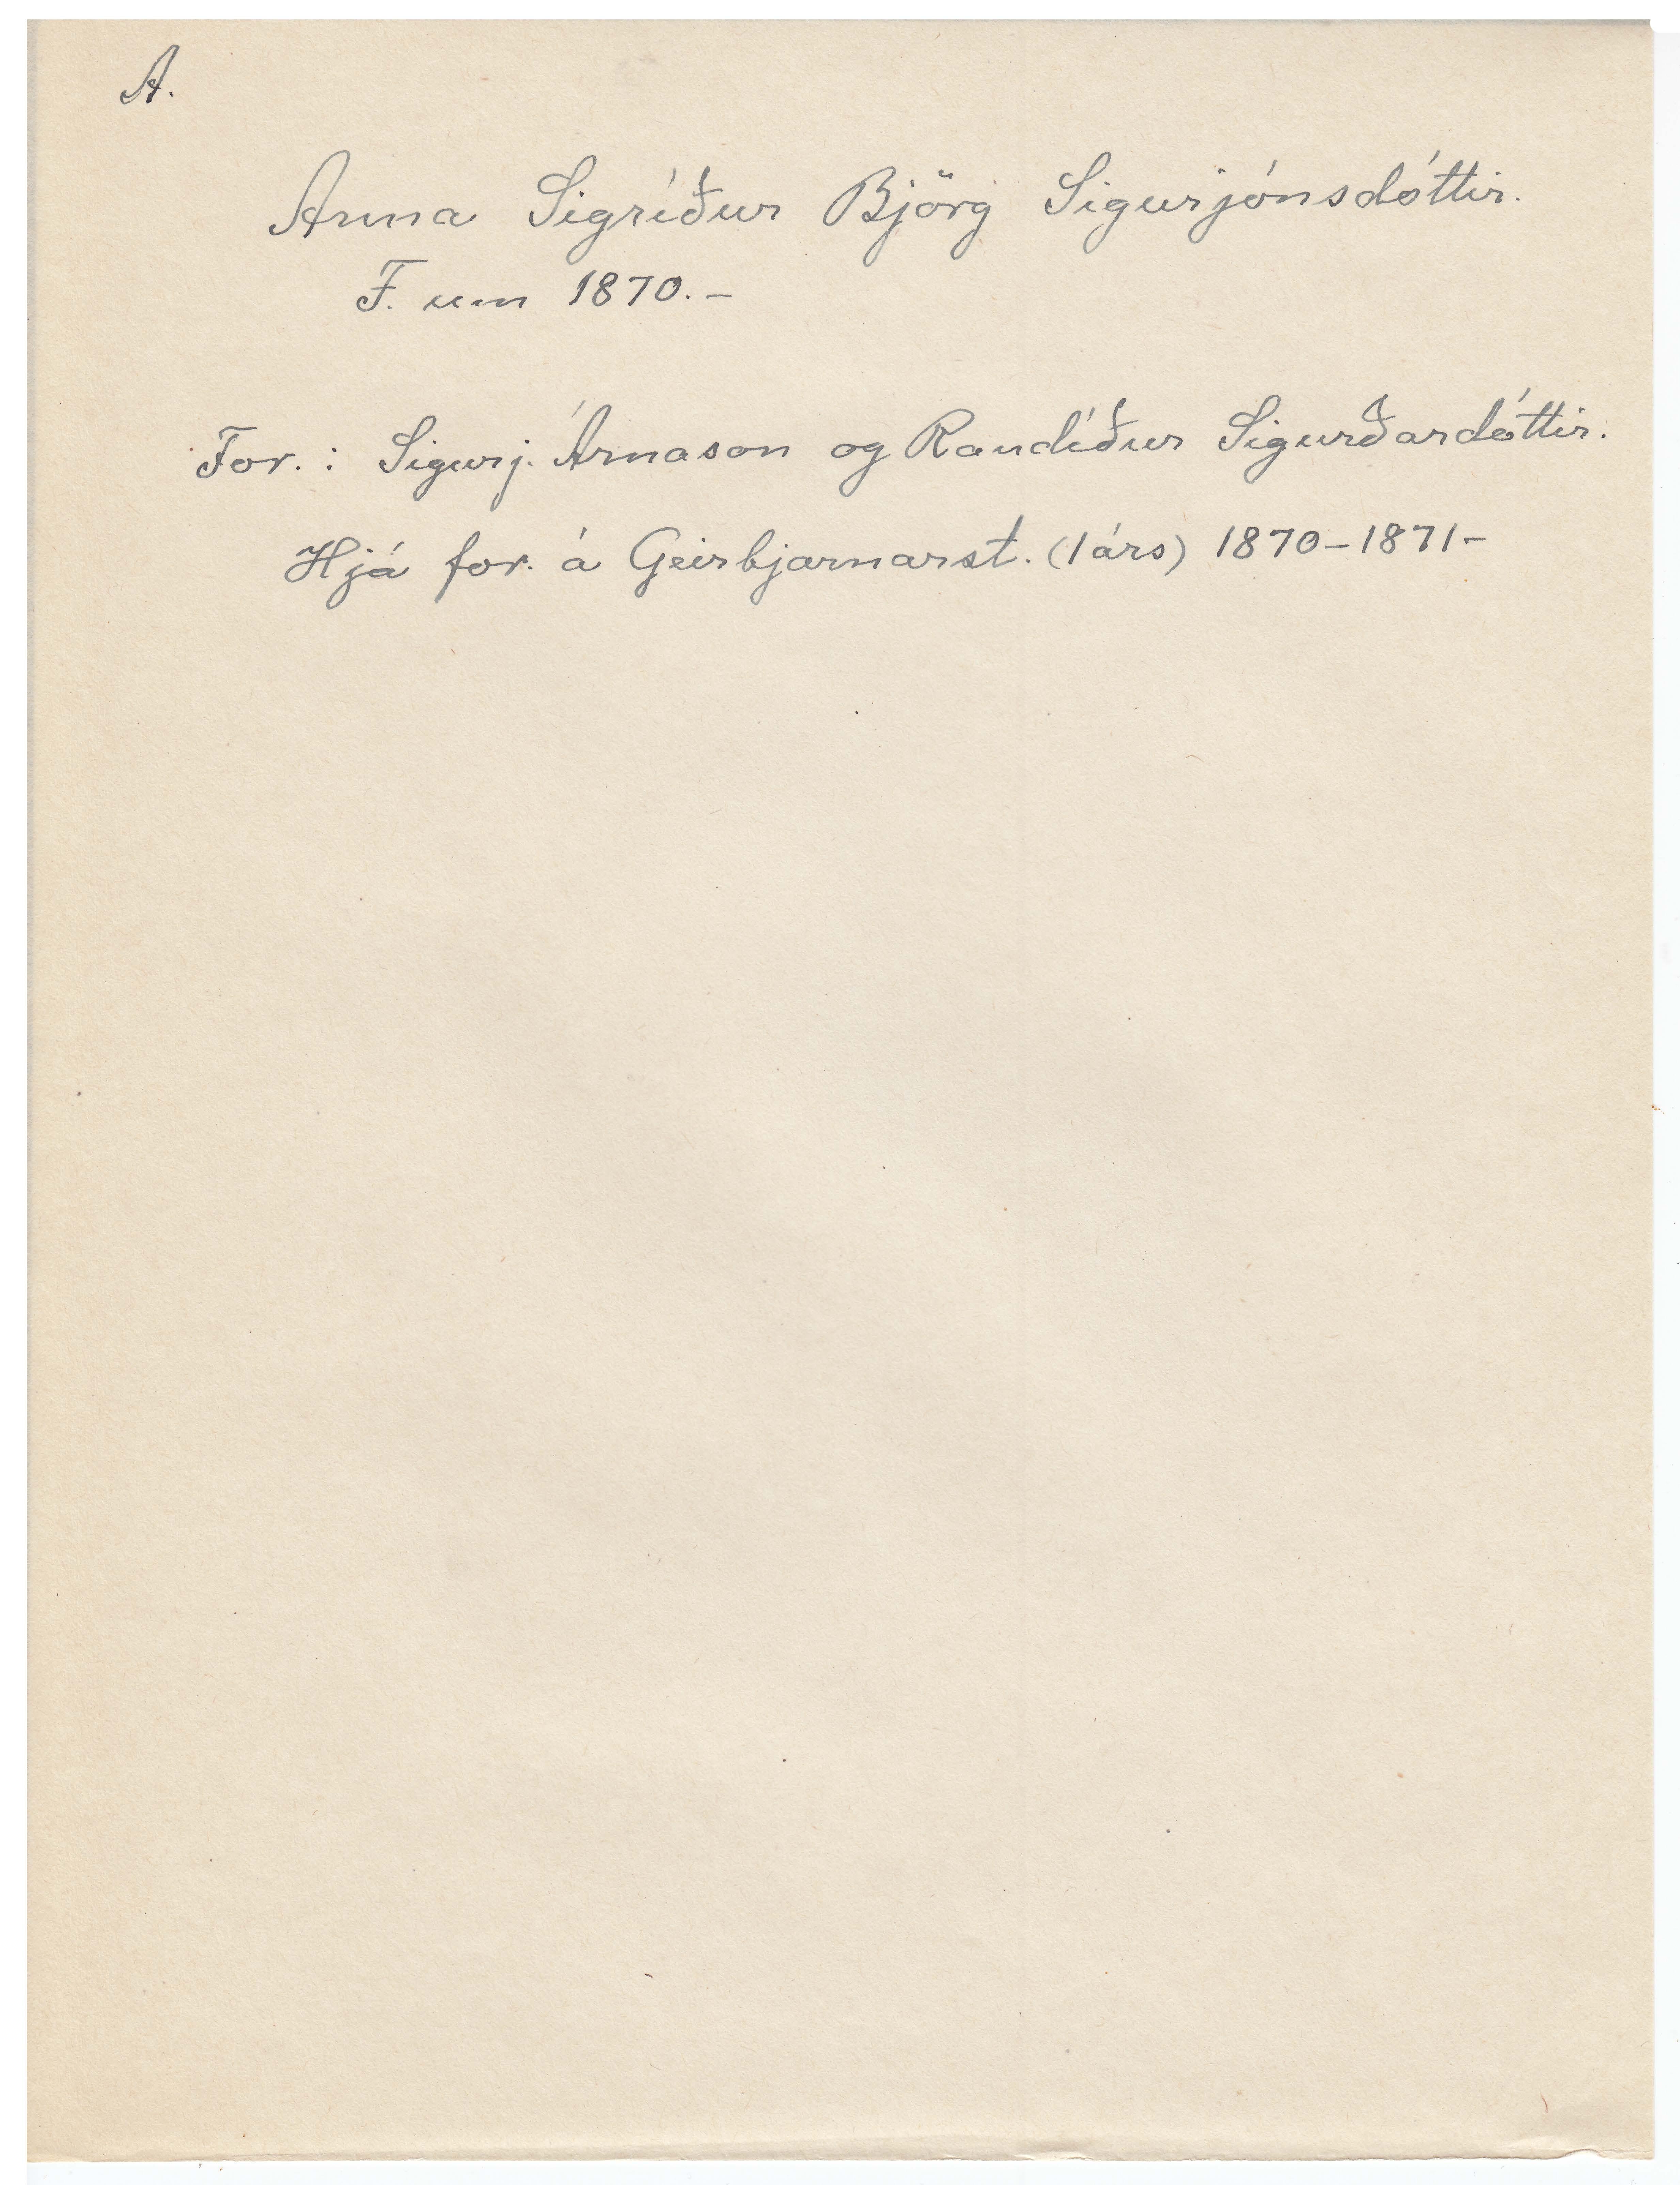 A.
Anna Sigríður Björg Sigurjónsdóttir.
F. um 1870.-
For. : Sigurj. Árnason og Randíður Sigurðardóttir.
Hjá for. á Geirbjarnarst. (1 árs) 1870-1871-